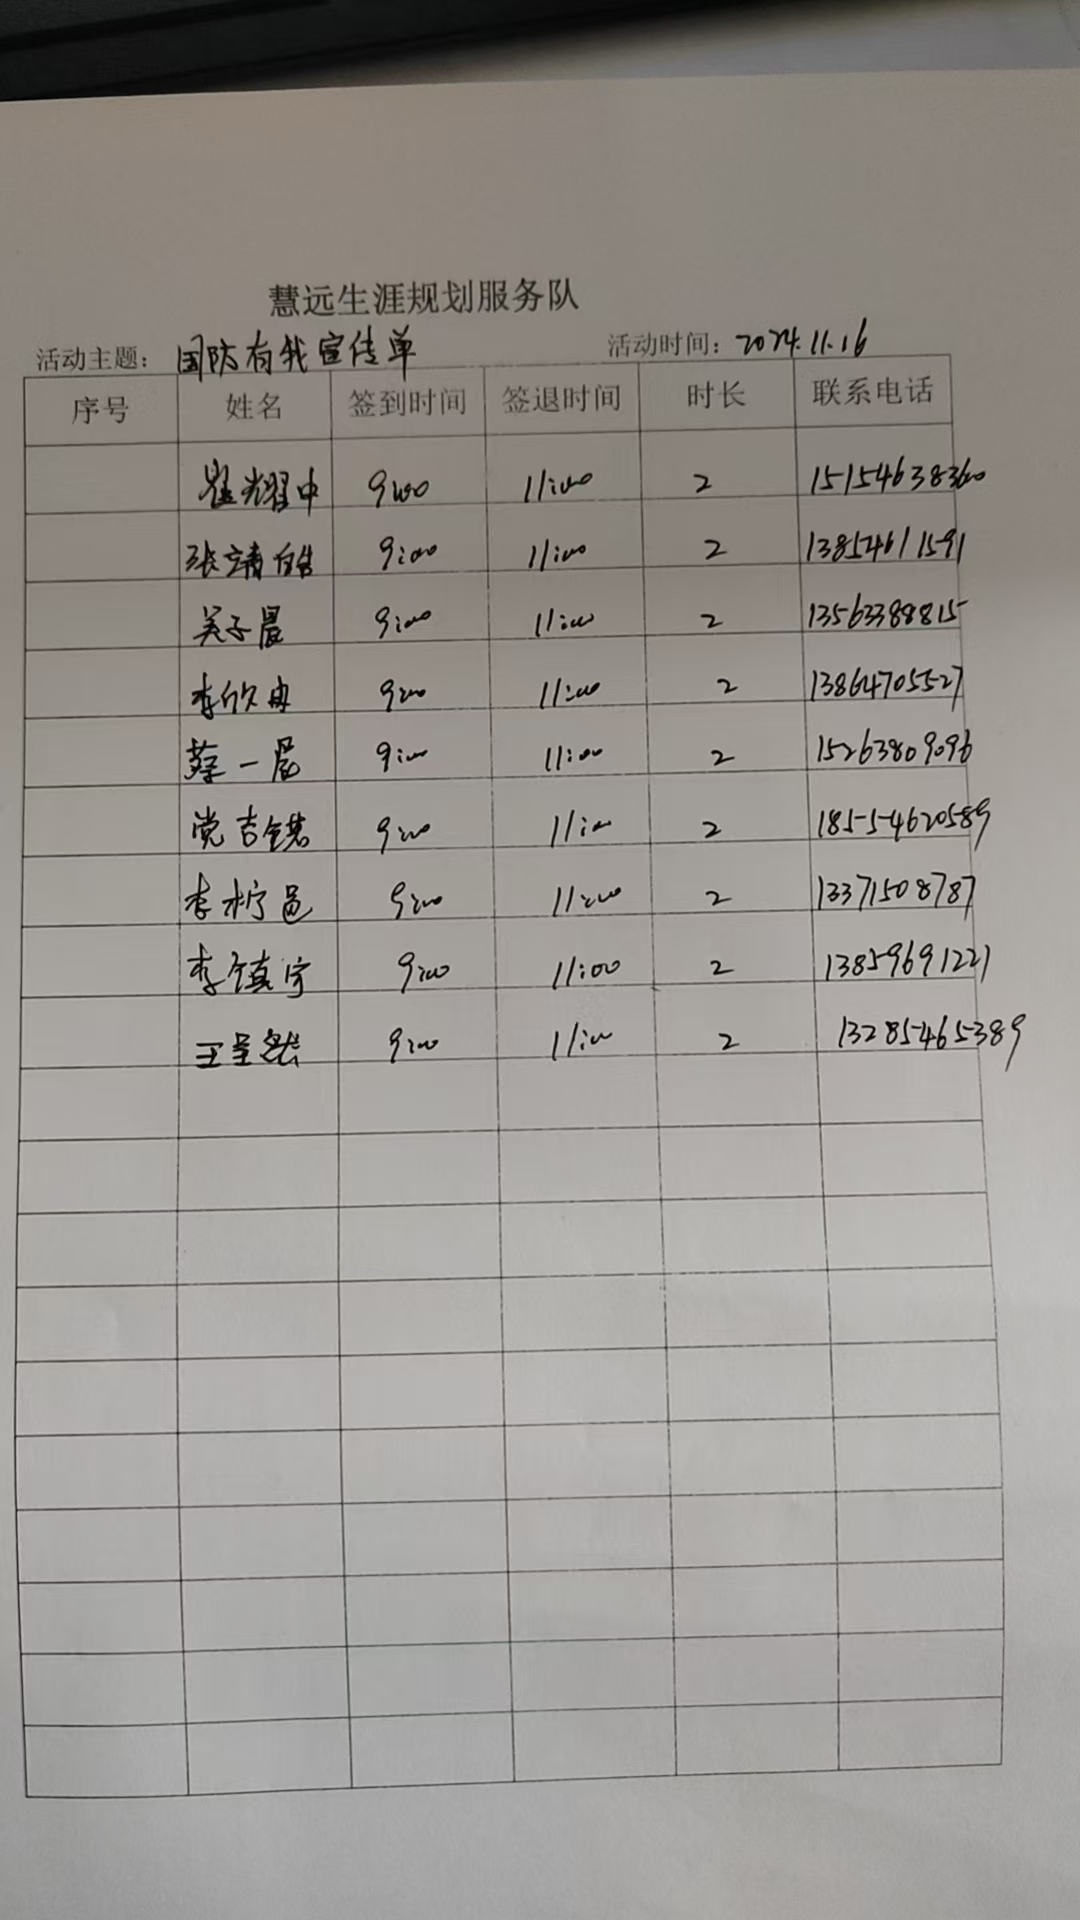 慧远生涯规划服务队
活动主题： 国防有我宣传单 活动时间：2024.11.16
序号 姓名 签到时间 签退时间 时长 联系电话
崔耀中 9:00 11:00 2 15154638360
张靖皓 9:00 11:00 2 13854611591
吴子晨 9:00 11:00 2 13563388815
李欣冉 9:00 11:00 2 13864705527
蔡一宸 9:00 11:00 2 15263809096
党吉 9:00 11:00 2 18554620589
李柠邑 9:00 11:00 2 13371508787
李镇宇 9:00 11:00 2 13859691221
王呈 9:00 11:00 2 13285465389